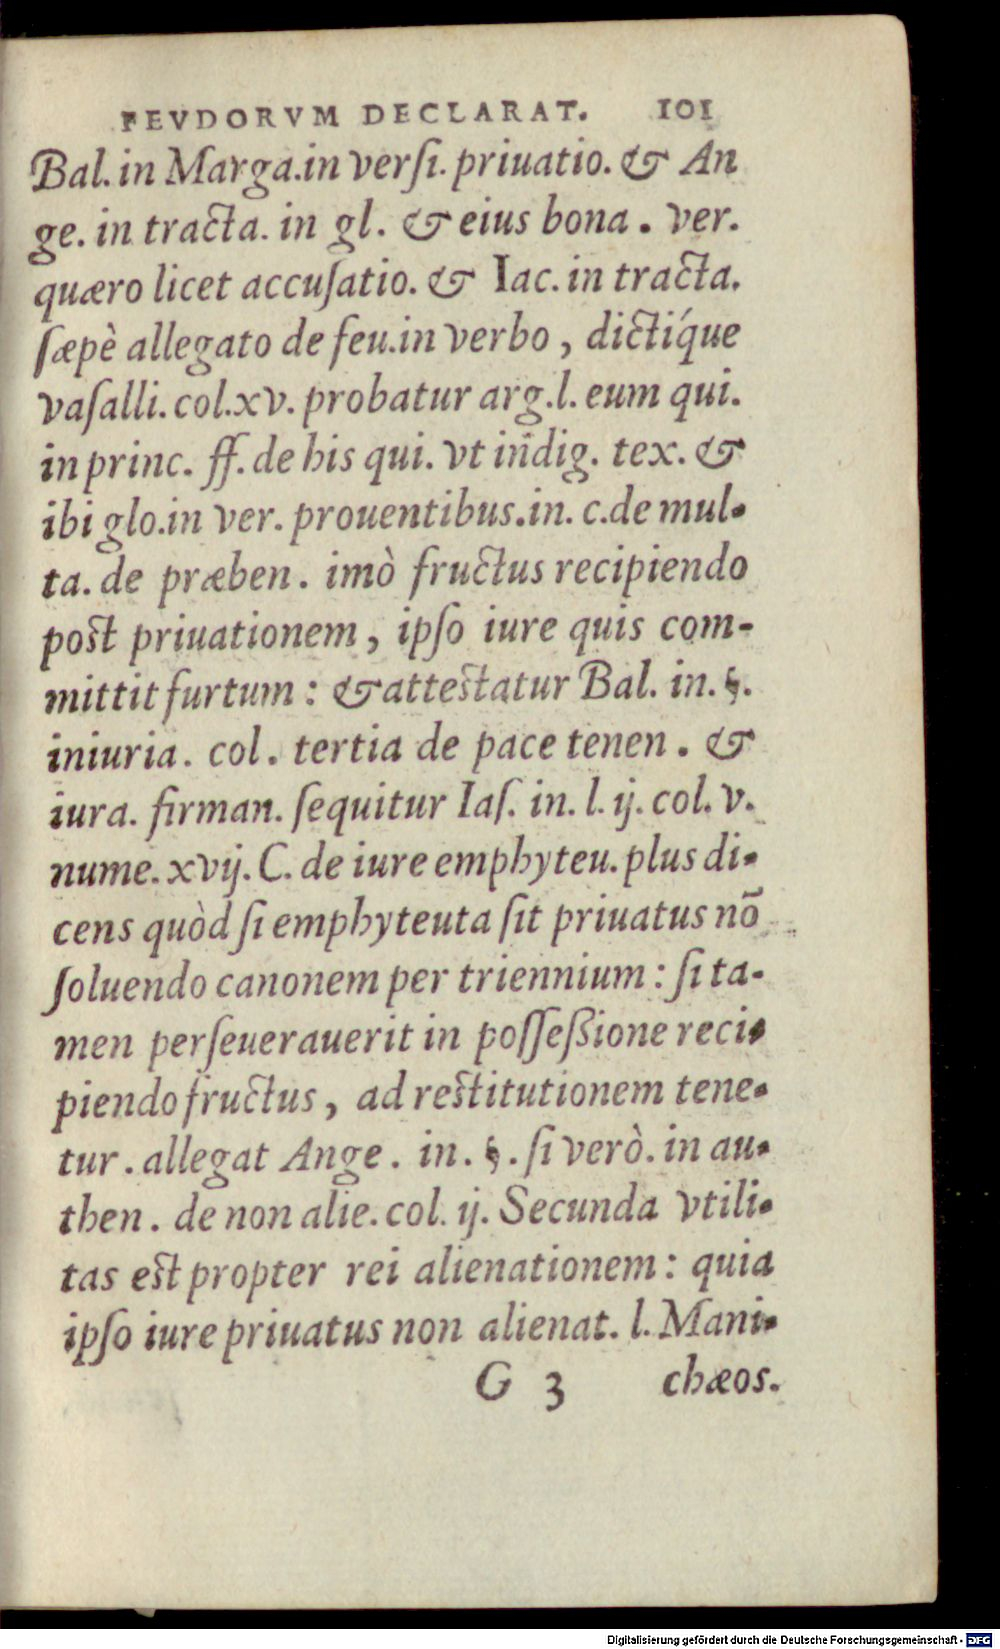 FEVDORVM DECLARAT. 101
Bal. in Marga.in verſi. priuatio. & An
ge. in tracta. in gl. & eius bona . ver.
quæro licet accuſatio. & Iac. in tracta.
ſæpè allegato de feu.in verbo , dictíque
vaſalli. col.xv. probatur arg.l. eum qui.
in princ. ff. de his qui. vt indig. tex. &
ibi glo.in ver. prouentibus.in. c.de mul-
ta. de præben . imò fructus recipiendo
post priuationem , ipſo iure quis com-
mittit furtum : & attestatur Bal. in. §.
iniuria . col . tertia de pace tenen . &
iura. firman. ſequitur Iaſ. in. l. ij. col. v.
nume. xvij. C. de iure emphyteu. plus di-
cens quòd ſi emphyteuta ſit priuatus nō
ſoluendo canonem per triennium : ſi ta-
men perſeuerauerit in poſſeßione reci-
piendo fructus , ad restitutionem tene-
tur . allegat Ange . in . §. ſi verò. in au-
then . de non alie. col. ij. Secunda vtili-
tas est propter rei alienationem : quia
ipſo iure priuatus non alienat. l. Mani-
G 3 chæos.
Digitalisierung gefördert durch die Deutsche Forschungsgemeinschaft - DFG